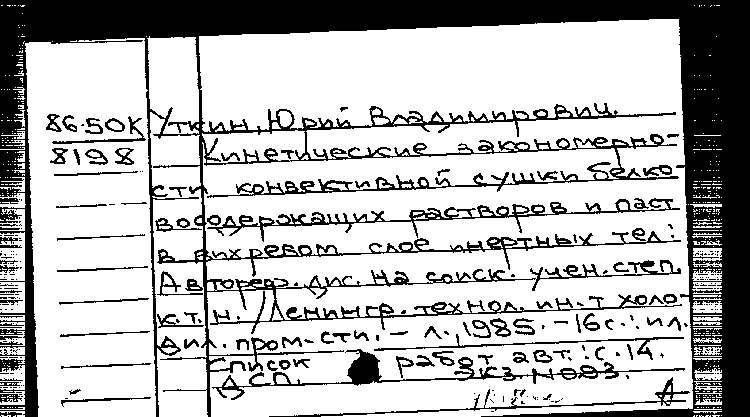 86.50К Уткин, Юрий Владимирович.
8198 Кинетические закономерно-
сти конвективной сушки белко-
восодержащих растворов и паст
в вихревом слое инертных тел:
Автореф. дис. на соиск. учен. степ.
к.т.н. /Ленингр. технол. ин-т холо-
дил. пром-сти. - Л., 1985. - 16с.: ил.
Список работ авт.: с. 14.
ДСП. Экз. N093.